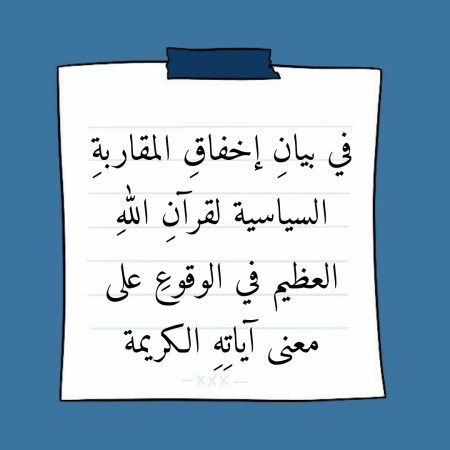 في بيانِ إخفاقِ المقاربةِ
السياسية لقرآنِ اللهِ
العظيم في الوقوعِ على
معنى آياتِهِ الكريمة
—xxx—